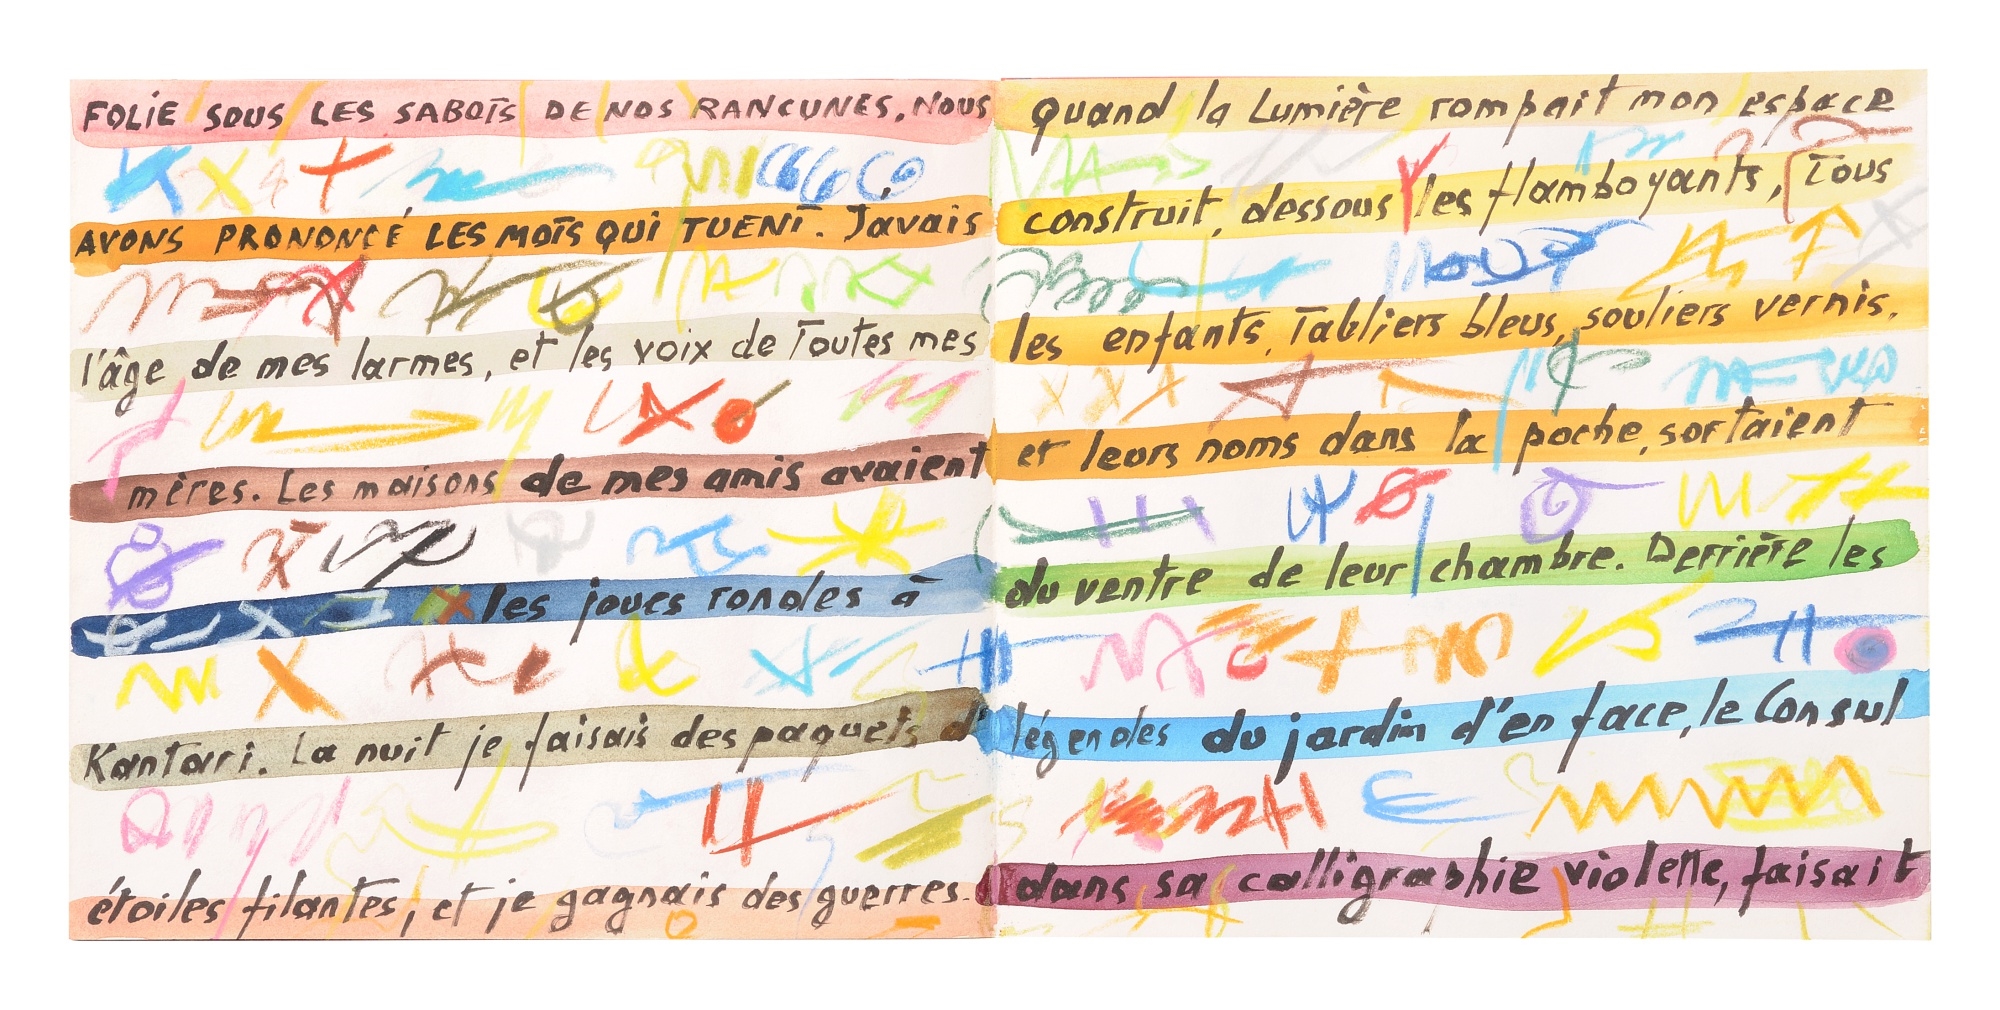 FOLIE SOUS LES SABOTS DE NOS RANCUNES. NOUS
AVONS PRONONCÉ LES MOTS QUI TUENT. J'avais
l'âge de mes larmes, et les voix de Toutes mes
mères. Les maisons de mes amis avaient
les joues rondes à
Kantari. La nuit je faisais des paquets d'
étoiles filantes, et je gagnais des guerres.
quand la Lumière rompait mon espace
construit, dessous les flamboyants, Tous
les enfants, Tabliers bleus, souliers vernis,
et leurs noms dans la poche, sortaient
du ventre de leur chambre. Derrière les
légendes du jardin d'en face, le Consul
dans sa calligraphie violette, faisait